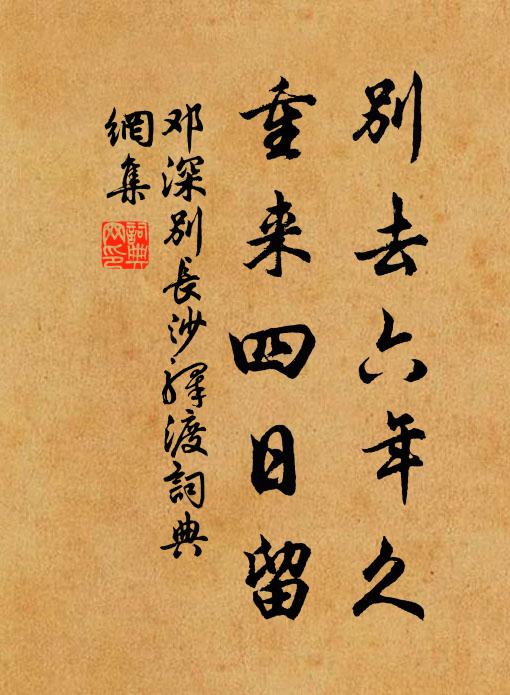 别去六年久
重来四日留
邓深别長沙驛渡詞典
網集
詞典
网印